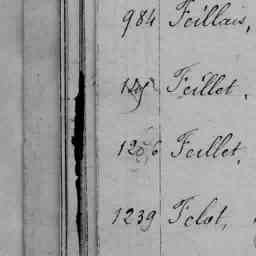 984 Feillais,
Feillet,
1256 Feillet,
1239 Felot,